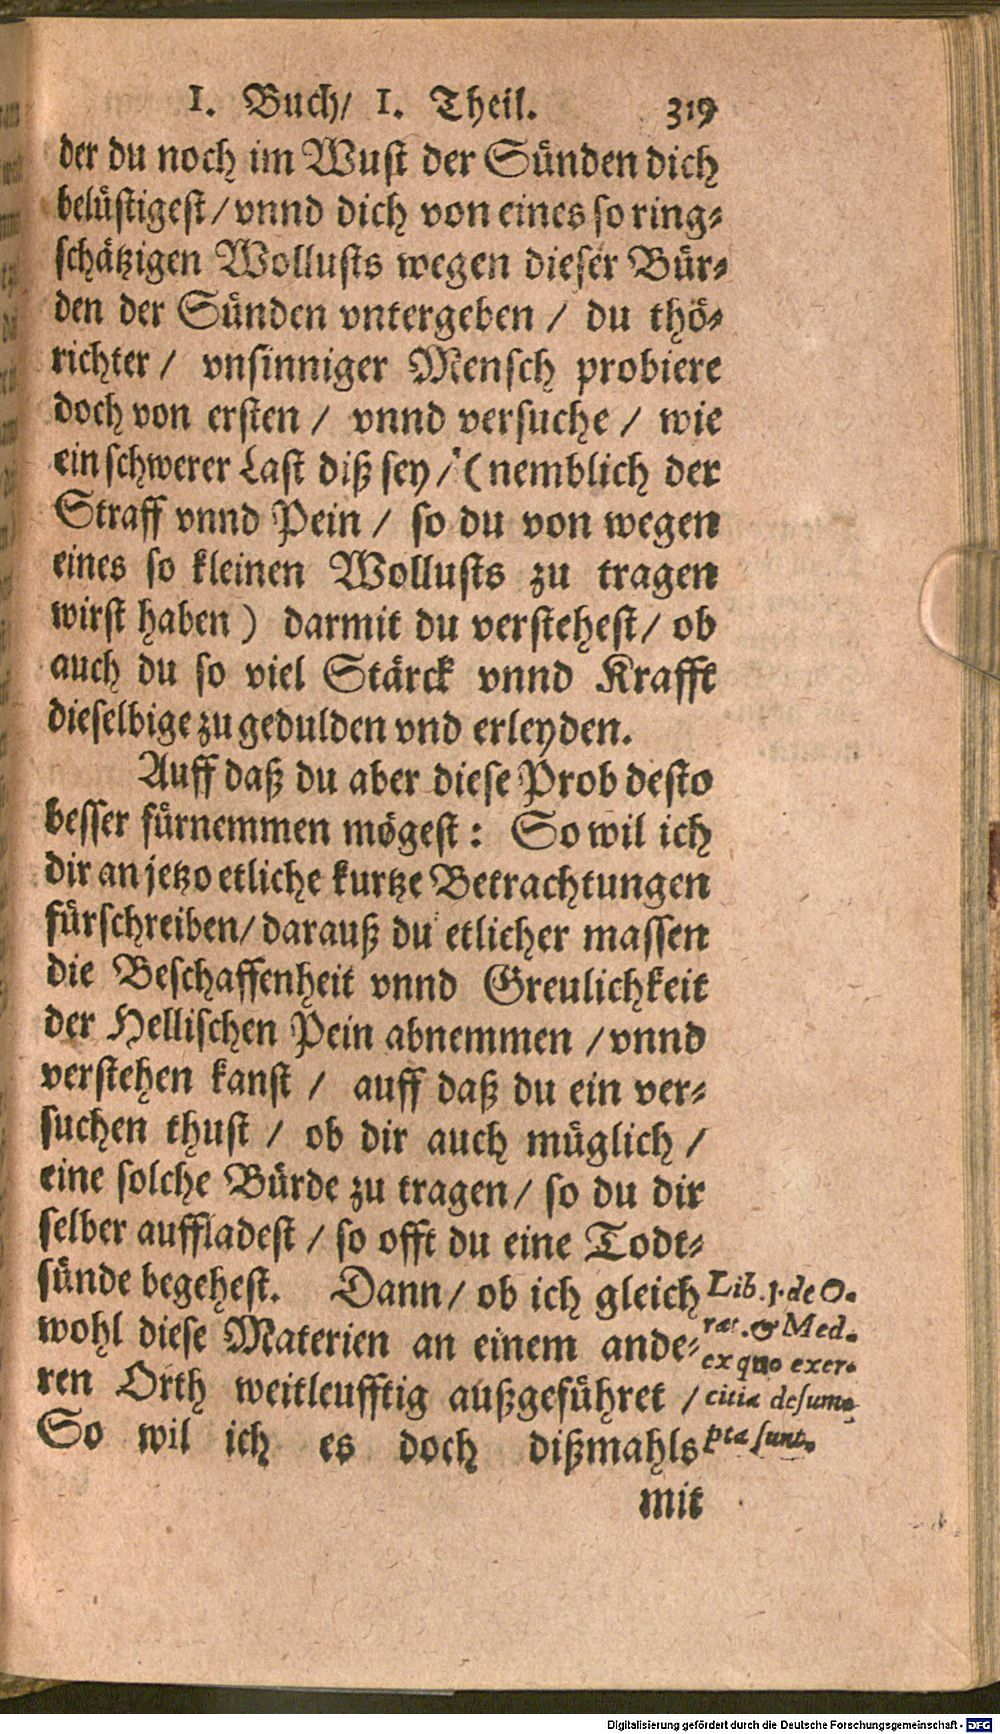 I. Buch/ I. Theil. 319
der du noch im Wust der Sünden dich
belüstigest/ vnnd dich von eines so ring-
schätzigen Wollusts wegen dieser Bür-
den der Sünden vntergeben / du thö-
richter / vnsinniger Mensch probiere
doch von ersten / vnnd versuche / wie
ein schwerer Last diß sey / (nemblich der
Straff vnnd Pein / so du von wegen
eines so kleinen Wollusts zu tragen
wirst haben) darmit du verstehest/ ob
auch du so viel Stärck vnnd Krafft
dieselbige zu gedulden vnd erleyden.
Auff daß du aber diese Prob desto
besser fürnemmen mögest: So wil ich
dir an jetzo etliche kurtze Betrachtungen
fürschreiben/ darauß du etlicher massen
die Beschaffenheit vnnd Greulichkeit
der Hellischen Pein abnemmen / vnnd
verstehen kanst / auff daß du ein ver-
suchen thust / ob dir auch müglich /
eine solche Bürde zu tragen/ so du dir
selber auffladest / so offt du eine Todt-
sünde begehest. Dann/ ob ich gleich
wohl diese Materien an einem ande-
ren Orth weitleufftig außgeführet /
So wil ich es doch dißmahls
mit
Lib. 1. de O-
rat. & Med.
ex quo exer-
citia desum-
pta sunt.
Digitalisierung gefördert durch die Deutsche Forschungsgemeinschaft - DFG